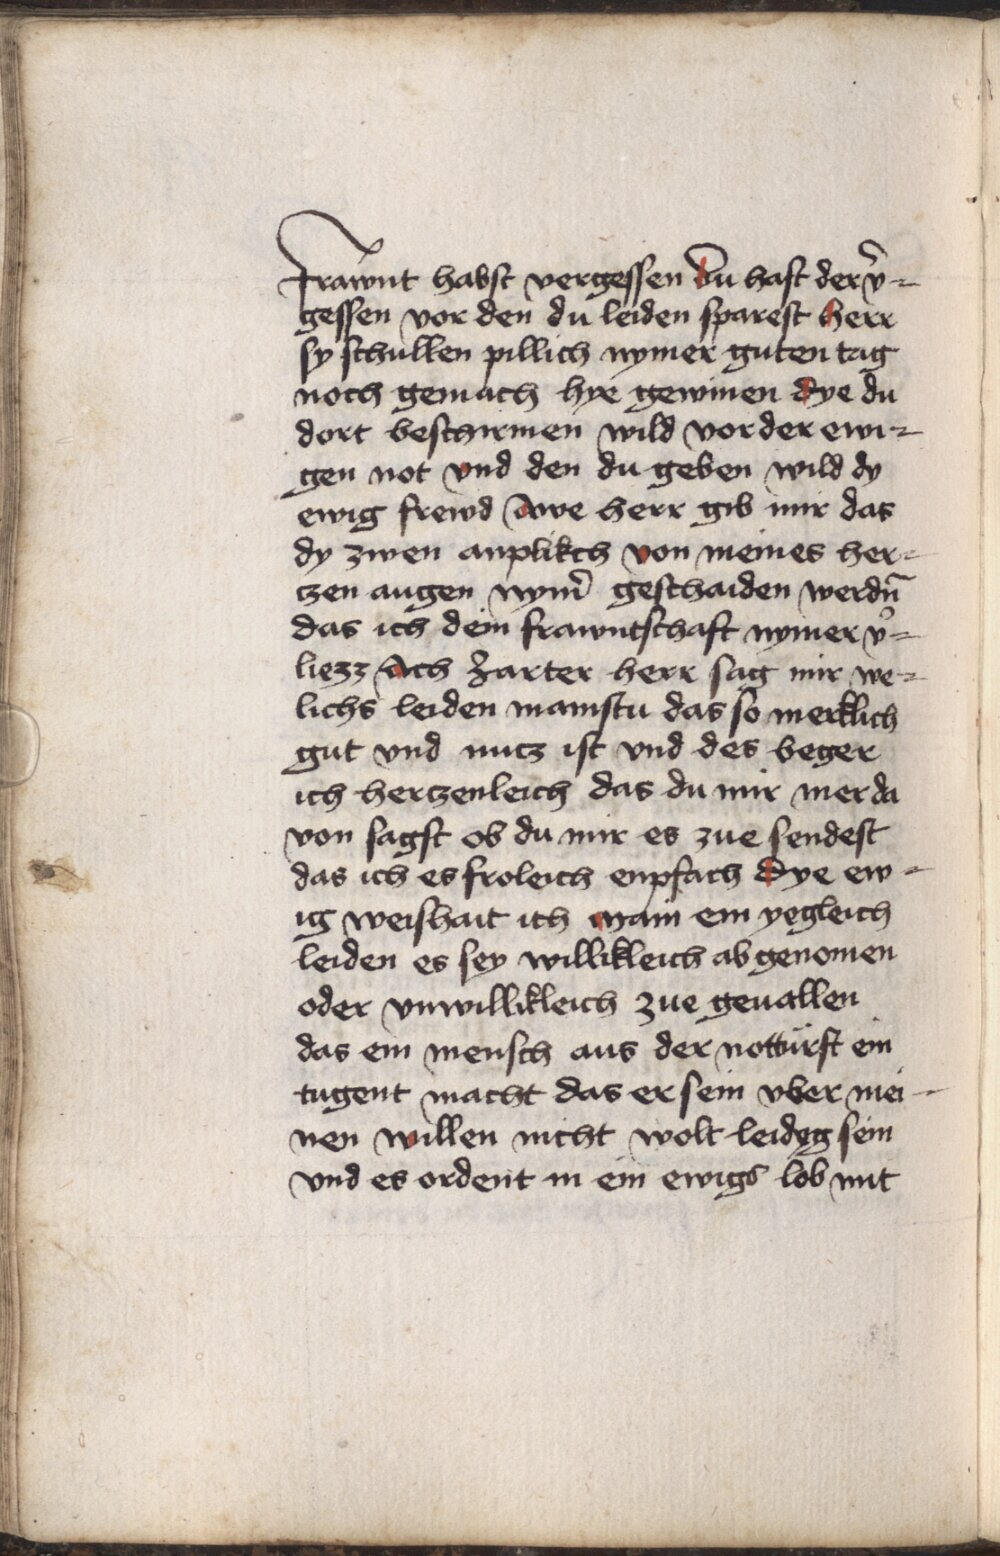 Frawnt habst vergessen Du hast der v̉-
gessen vor den du leiden sparest Herr
sy schullen pillich nymer guten tag
noch gemach hye gewinen Dye du
dort beschirmen wild vor der ewi-
gen not vnd den du geben wild dy
ewig frewd Awe herr gib mir das
dy zwen anplikch von meines her-
tzen augen nym̉ geschaiden werdn̄
das ich dein frawntschaft nymer v̉-
liezz Ach Zarter herr sag mir we-
lichs leiden mainstu das so merklich
gut vnd nutz ist vnd des beger
ich hertzenleich das du mir mer da
von sagst ob du mir es zue sendest
das ich es froleich enpfach Dye ew-
ig weishait ich main ein yegleich
leiden es sey willikleich ab genomen
oder vnwillikleich zue geuallen
das ein mensch aus der notturft ein
tugent macht das er sein vber mei-
nen willen nicht wolt leidyg sein
vnd es ordent in ein ewigs lob mit